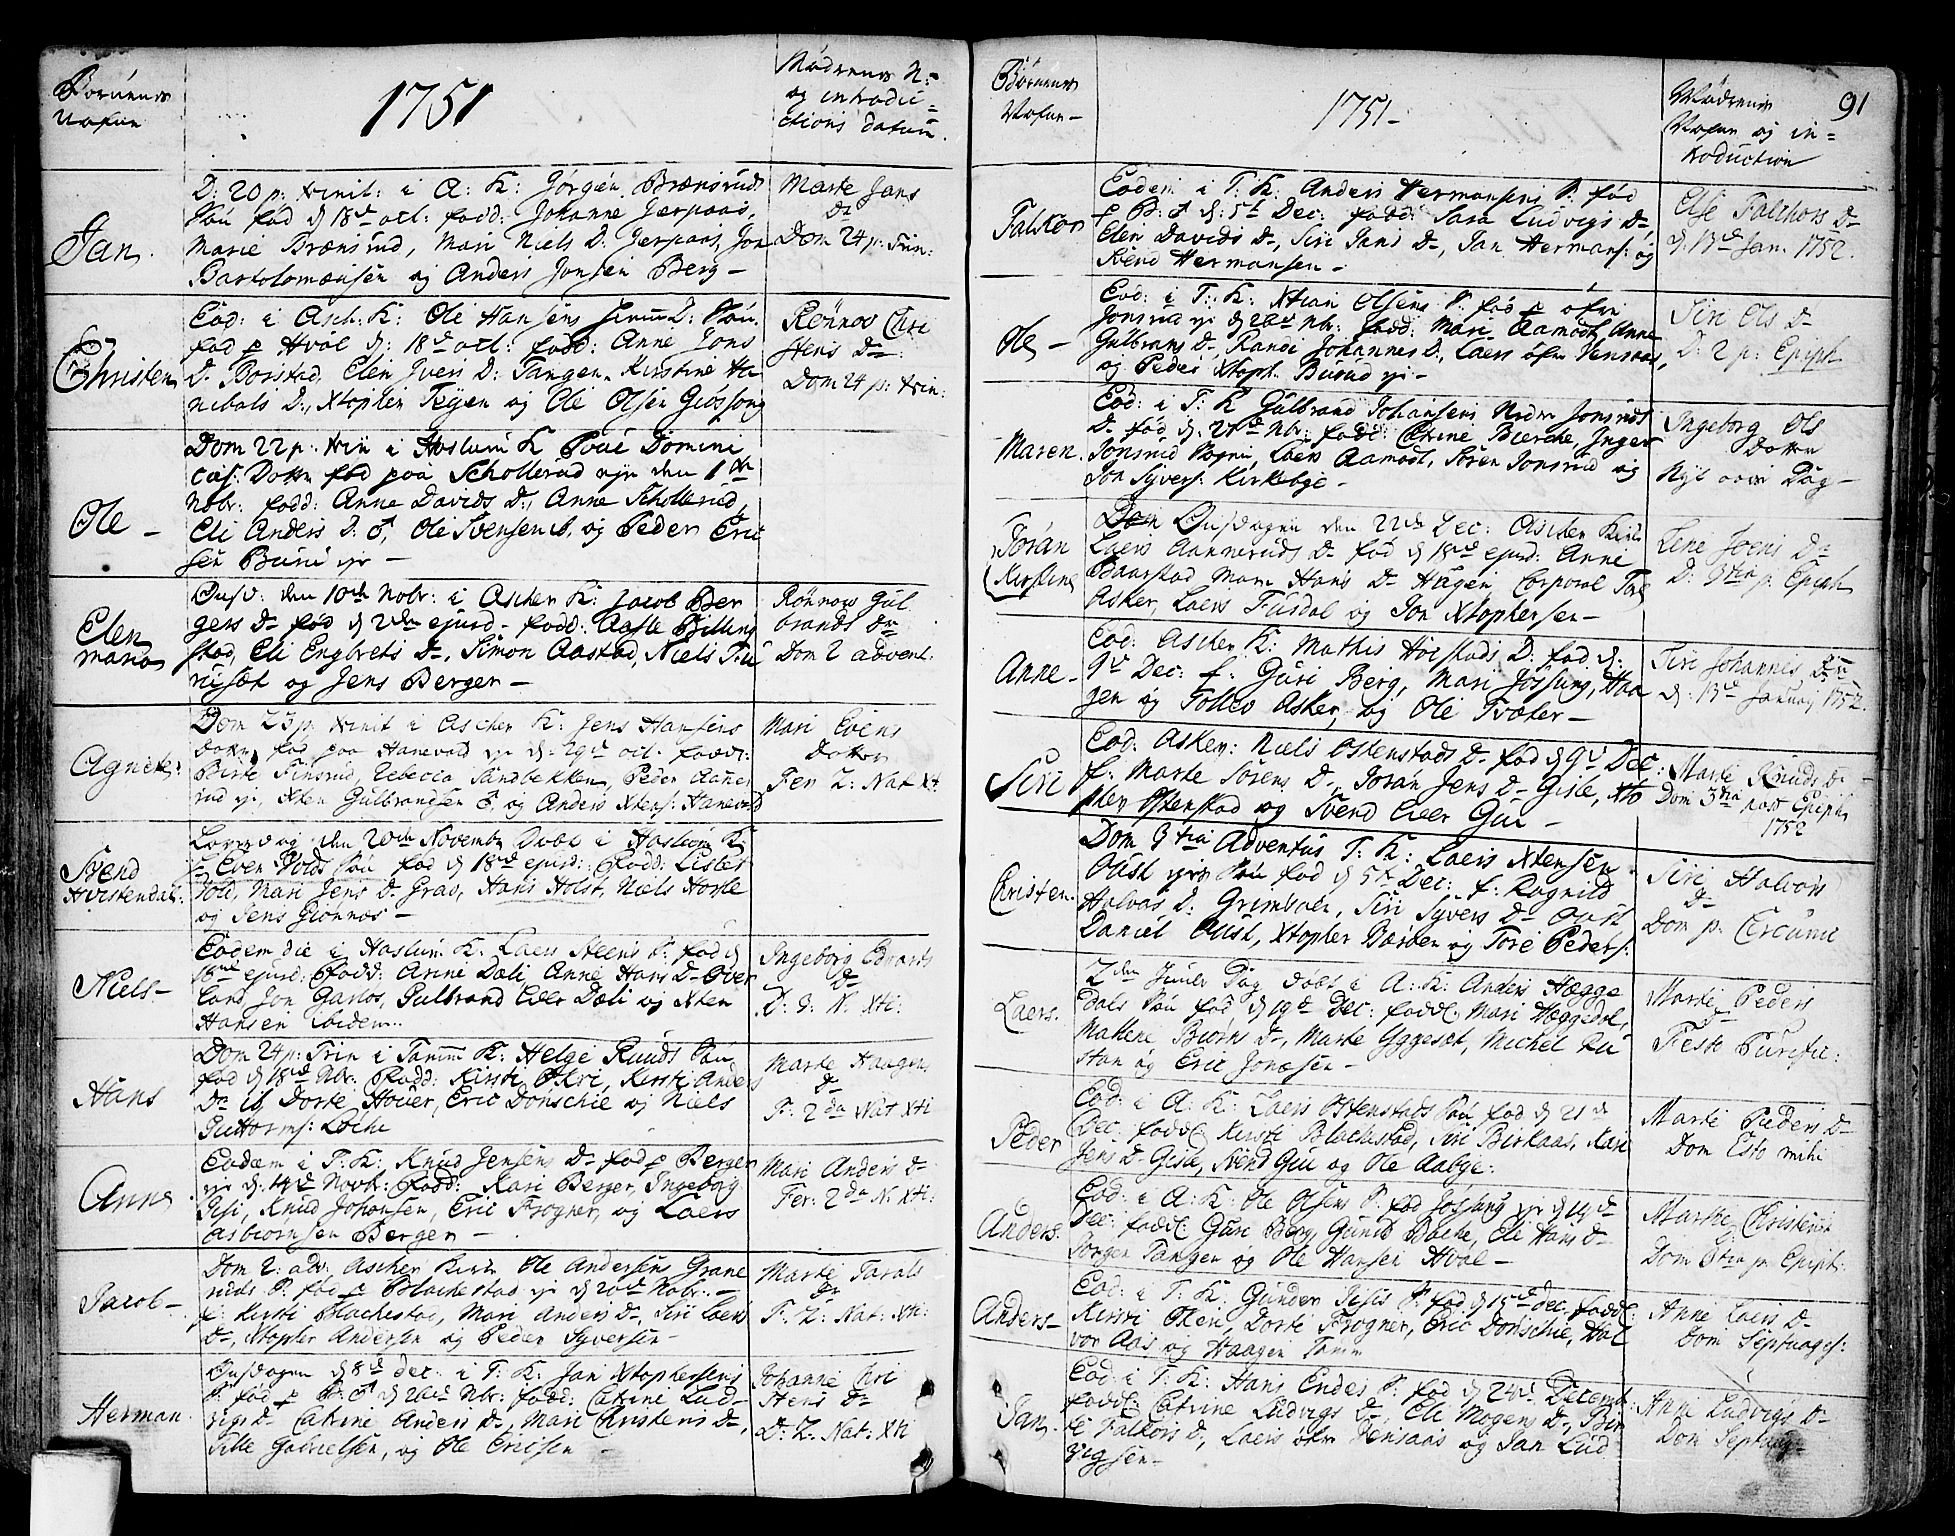 Børnenes
Nafne
1751
Mødrenes N:
og introdu=
ctions datum.
Jan.
D: 20 p: trinit: i A: K: Jørgen Brænsruds
Søn fød d 18de oct: fadd: Johanne Jerpaas,
Marie Brænsrud, Mari Niels D: Jerpaas, Jon
Bartolomæusen og Anders Jonsen Berg —
Marte Jans
Dr
Dom 24 p: Trin:
Christen
Eod: i Asch: K: Ole Hansens Søn
fød p Hval d: 18d oct: fadd: Anne Jons
D. Borstad, Elen Ivers D: Tangen, Kirstine Ha
nibals D:, Xtopher Tejen og Ole Olsen Giøssong
Rønnov Chri
stens Dr:
Dom 24 p: trin:
Ole —
Dom 22 p: trin i Haslum K Povel Domini
cus: Datter fød paa Schollerud eyr den 1ste
Nobr: fadd: Anne Davids D:, Anne Schollerud,
Eli Anders D: ♂, Ole Svensen ib. og Peder Eric
sen Burud eyr —
Elen
maria
Onsd: den 10de Nobr: i Ascher K: Jacob Ber
gers Dr fød d 2den ejusd — fadd: Aasle Billing
stad, Eli Engbrets Dr, Simon Aastad, Niels Tru
ruset og Jens Berger —
Rønnov Gul
brands Dr
Dom 2 advent.
Agnete
Dom 23 p: trinit i Ascher K: Jens Hansens
Datter fød paa Hanevold eyr d: 29d oct: fadd:
Birte Finsrud, Rebecca Sandbekken, Peder Aanne
rud eyr, Xten Gulbrandsen ♂ og Anders Xtens: Hanevold
Mari Evens
Datter
Fer 2: Nat Xti
Svend
Hvistendal:
Løverdag den 20de Novembr Døbt i Haslum K
Even Volds Søn fød d 18d ejusd: Fadd: Lisbet
Vold, Mari Jens D Grav, Hans Holst, Niels Hofle
og Jens Gionnes —
Niels —
Eodem die i Haslum K: Laers Steens S: fød d
16de ejusd: Fadd: Anne Dæli, Anne Hans D Over
land, Jon Garlos, Gulbrand Ever Dæli og Xten
Hansen ibidem.
Ingeborg Edvards
Dr
D: d: N. Xti:
Hans
Dom 24 p: Trin i Tanum K: Helge Ruuds Søn
fød d 18d Nbr: Fadd: Kirsti Økri, Kirsti Ande
Dr ib, Dorte Houer, Eric Donschie og Niels
Guttorms: Løche
Marte Haagens
Dr
F: 2da Nat Xti
Anne
Eodem i T: K: Knud Jensens Dr fød p Berger
eyr d: 14d Novbr: Fadd: Kari Berger, Ingeborg
Gisi, Knud Johansen, Eric Frogner, og Laers
Asbiørnsen Berger —
Mari Anders Dr
Fer: 2da N. Xti:
Jacob —
Dom 2. adv: Ascher Kirk Ole Andersens Grane
ruds S: fød p Blachestad eyr d 20de Nobr: —
f: Kirsti Blachestad, Mari Anders Dr, Siri Laers
Dr, Xtopher Andersen og Peder Syversen —
Marte Taralds
Dr
F. 2: Nat: Xti:
Herman
Onsdagen d 8d Dec: i T: K: Jan Xtophersens
S: fød p B: ♂ d 26de Nbr: fadd: Catrine Lud
vigs Dr, Catrine Anders Dr, Mari Christens Dr,
Tille Gabrielsen, og Ole Ericsen —
Johanne Chri
stens Dr
D. 2. Nat: Xti
Børnenes
Nafne —
1751 —
Mødrenes
Nafne og in=
troduction
91
Falkor
Eodem i T: K: Anders Hermansens S: fød
p B: ♂ d: 5t Dec: fadd: Sara Ludvigs Dr,
Elen Davids Dr, Siri Jans Dr, Jan Hermans: og
Svend Hermansen —
Else Falchors Dr
d: 13d Jan. 1752.
Ole —
Eod: i T: K: Xtian Olsens S: fød p øfre
Jonsrud eyr d 26d Nbr: fadd: Mari Aamodt, Anne
Gulbrans Dr, Randi Johannes D, Laers øfre Vensaas,
og Peder Xtoph: Burud eyr —
Siri Ols Dr
D: 2 p: Epiph
Maren.
Eod: i T: K Gulbrand Johansens Nedre Jonsruds
Dr fød d: 21d Nbr: fadd: Catrine Bierche, Inger
Jonsrud Vogni, Laers Aamodt, Søren Jonsrud og
Jon Syvers: Kirkebye —
Ingeborg Ols
Datter
Nyt aars Dag —
Joran
Kirstine
Onsdagen den 22de Dec: Ascher Kirk
Laers Aannaruds Dr fød d 18d ejusd: Anne
Baarstad, Mari Hans Dr Hagen, Corporal Tol
Asker, Laers Fusdal og Jon Xtophersen —
Lene Joens Dr
D: 3tia p: Epiph
Anne —
Eod: Ascher K: Mathis Hofstads D: fød d:
9d Dec: f: Guri Berg, Mari Jøssung, Haa
gen og Tollev Asker, og Ole Tvæter —
Siri Johannes Dr
d: 13d Januarj 1752.
Siri
Eod: Asker: Niels Østenstads Dr fød d 9d Dec:
f: Marte Sørens D, Joran Jens Dr Gisle, Xto
pher Østenstad og Svend Ever Gui —
Marte Knuds Dr
Dom 3tia post Epiph
1752
Christen.
Dom 3tia Adventus T: K: Laers Xtensen
Oust eyrs Søn fød d 5t Dec: f: Ragnild
Halvors D: Grimboen, Siri Syvers Dr Oust
Daniel Oust, Xtopher Basben og Tore Peders:
Siri Halvors
Dr
Dom p: Circumc
Laers.
2den Juule Dag Døbt i A: K: Anders Hegge
dals Søn fød d 19d Dec: fadd: Mari Heggedal,
Mallene Biørns Dr, Marte Yggeset, Michel Ru
stan og Eric Jonæsen —
Marte Peders
Dr
Festo Purific:
Peder
Eod: i A: K: Laers Østenstads Søn fød d 21d
Dec: fadd: Kirsti Blachestad, Siri Birkaas, Kari
Jens Dr Gisle, Svend Gui og Ole Aabye:
Marte Peders Dr
Dom Esto mihi
Anders.
Eod: i A: K: Ole Olsens S: fød Jøssung eyr d 19d
Dec: fadd: Guri Berg, Gunild Bache, Eli Hans Dr
Jørgen Tangen og Ole Hansen Hval —
Marthe Christens
Dom 3tia p: Epiph:
Anders —
Eod: i T: K: Gunder Gisis S: fød d 15d Dec: fadd:
Kirsti Økeri, Dorte Frogner, Eric Donschie, Hal
vor Aas og Haagen Tanum
Anne Laers Dr
Dom Septuages:
Jan.
Eod: i T: K: Hans Endes S: fød d 24d Decemb:
fadd: Catrine Ludvigs Dr, Eli Mogens Dr, Bir
te Falkors Dr, Laers øfre Vensaas og Jan Lud
vigsen —
Anne Ludvigs Dr
Dom Septuag —